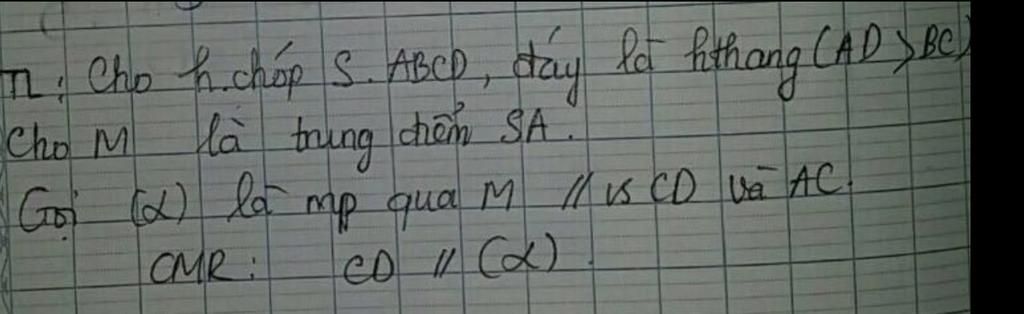 П: Cho h.chóp S.ABCD, đáy là hthang (AD > BC)
Cho M là trung điểm SA.
Gọi (α) là mp qua M // vs CD và AC.
CMR: CD // (α).